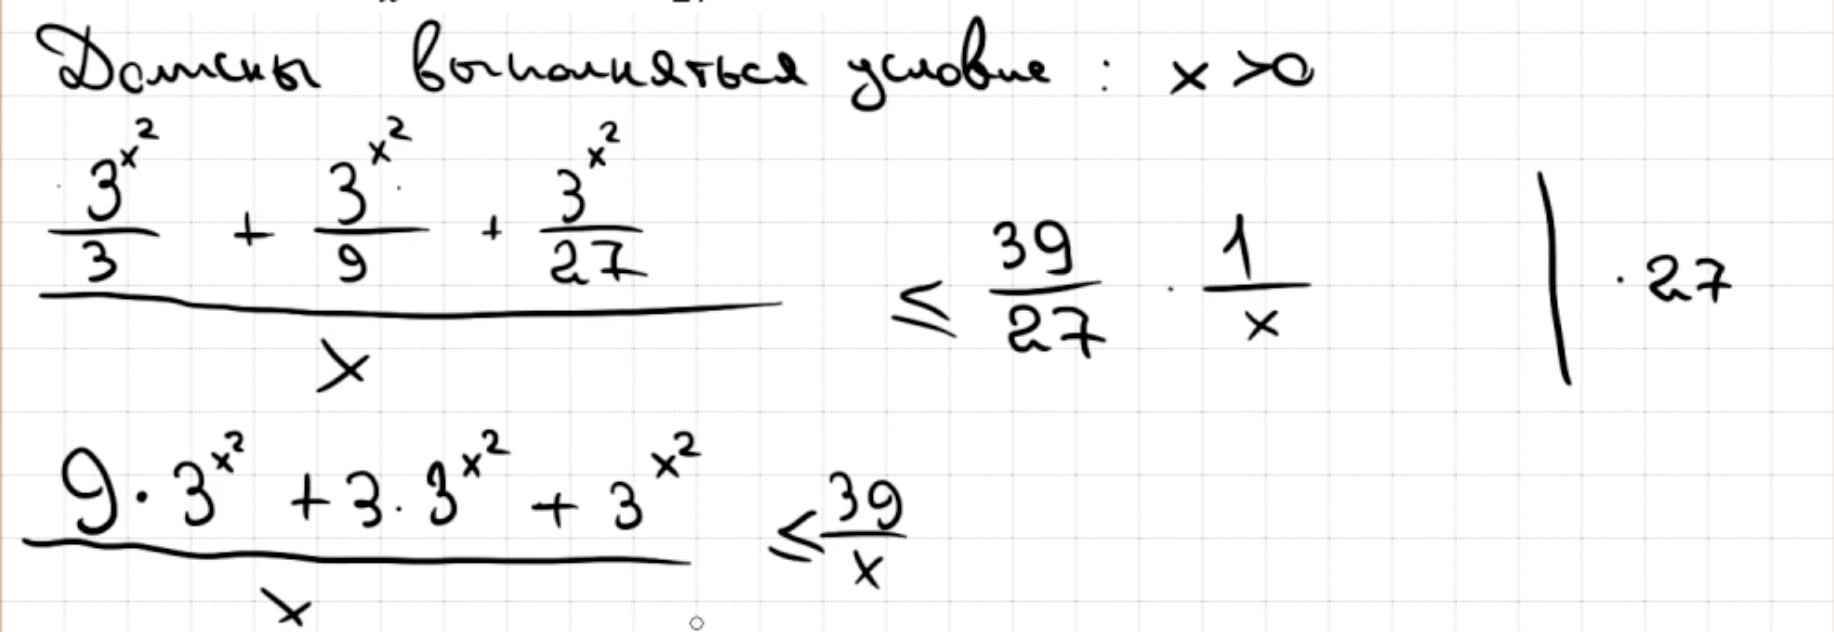 Должны выполняться условие : x>0
(3^{x^2}/3 + 3^{x^2}/9 + 3^{x^2}/27)/x ≤ 39/27 · 1/x | · 27
(9·3^{x^2} + 3·3^{x^2} + 3^{x^2})/x ≤ 39/x